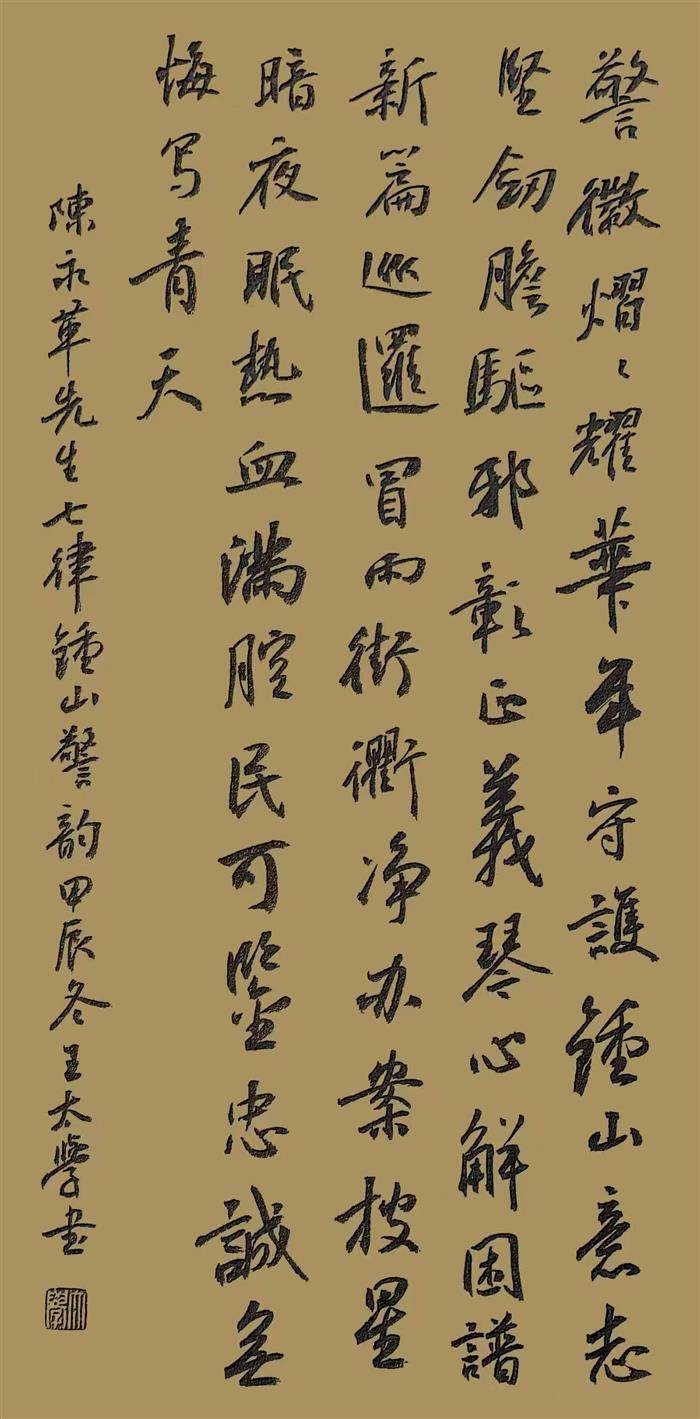 警徽熠々耀華年守護鍾山意志
堅劒膽驅邪彰正義琴心解困譜
新篇巡邏冒雨街衢净办案披星
暗夜眠热血满腔民可鑒忠誠無
悔写青天
陳永革先生七律鍾山警韵甲辰冬王太學书